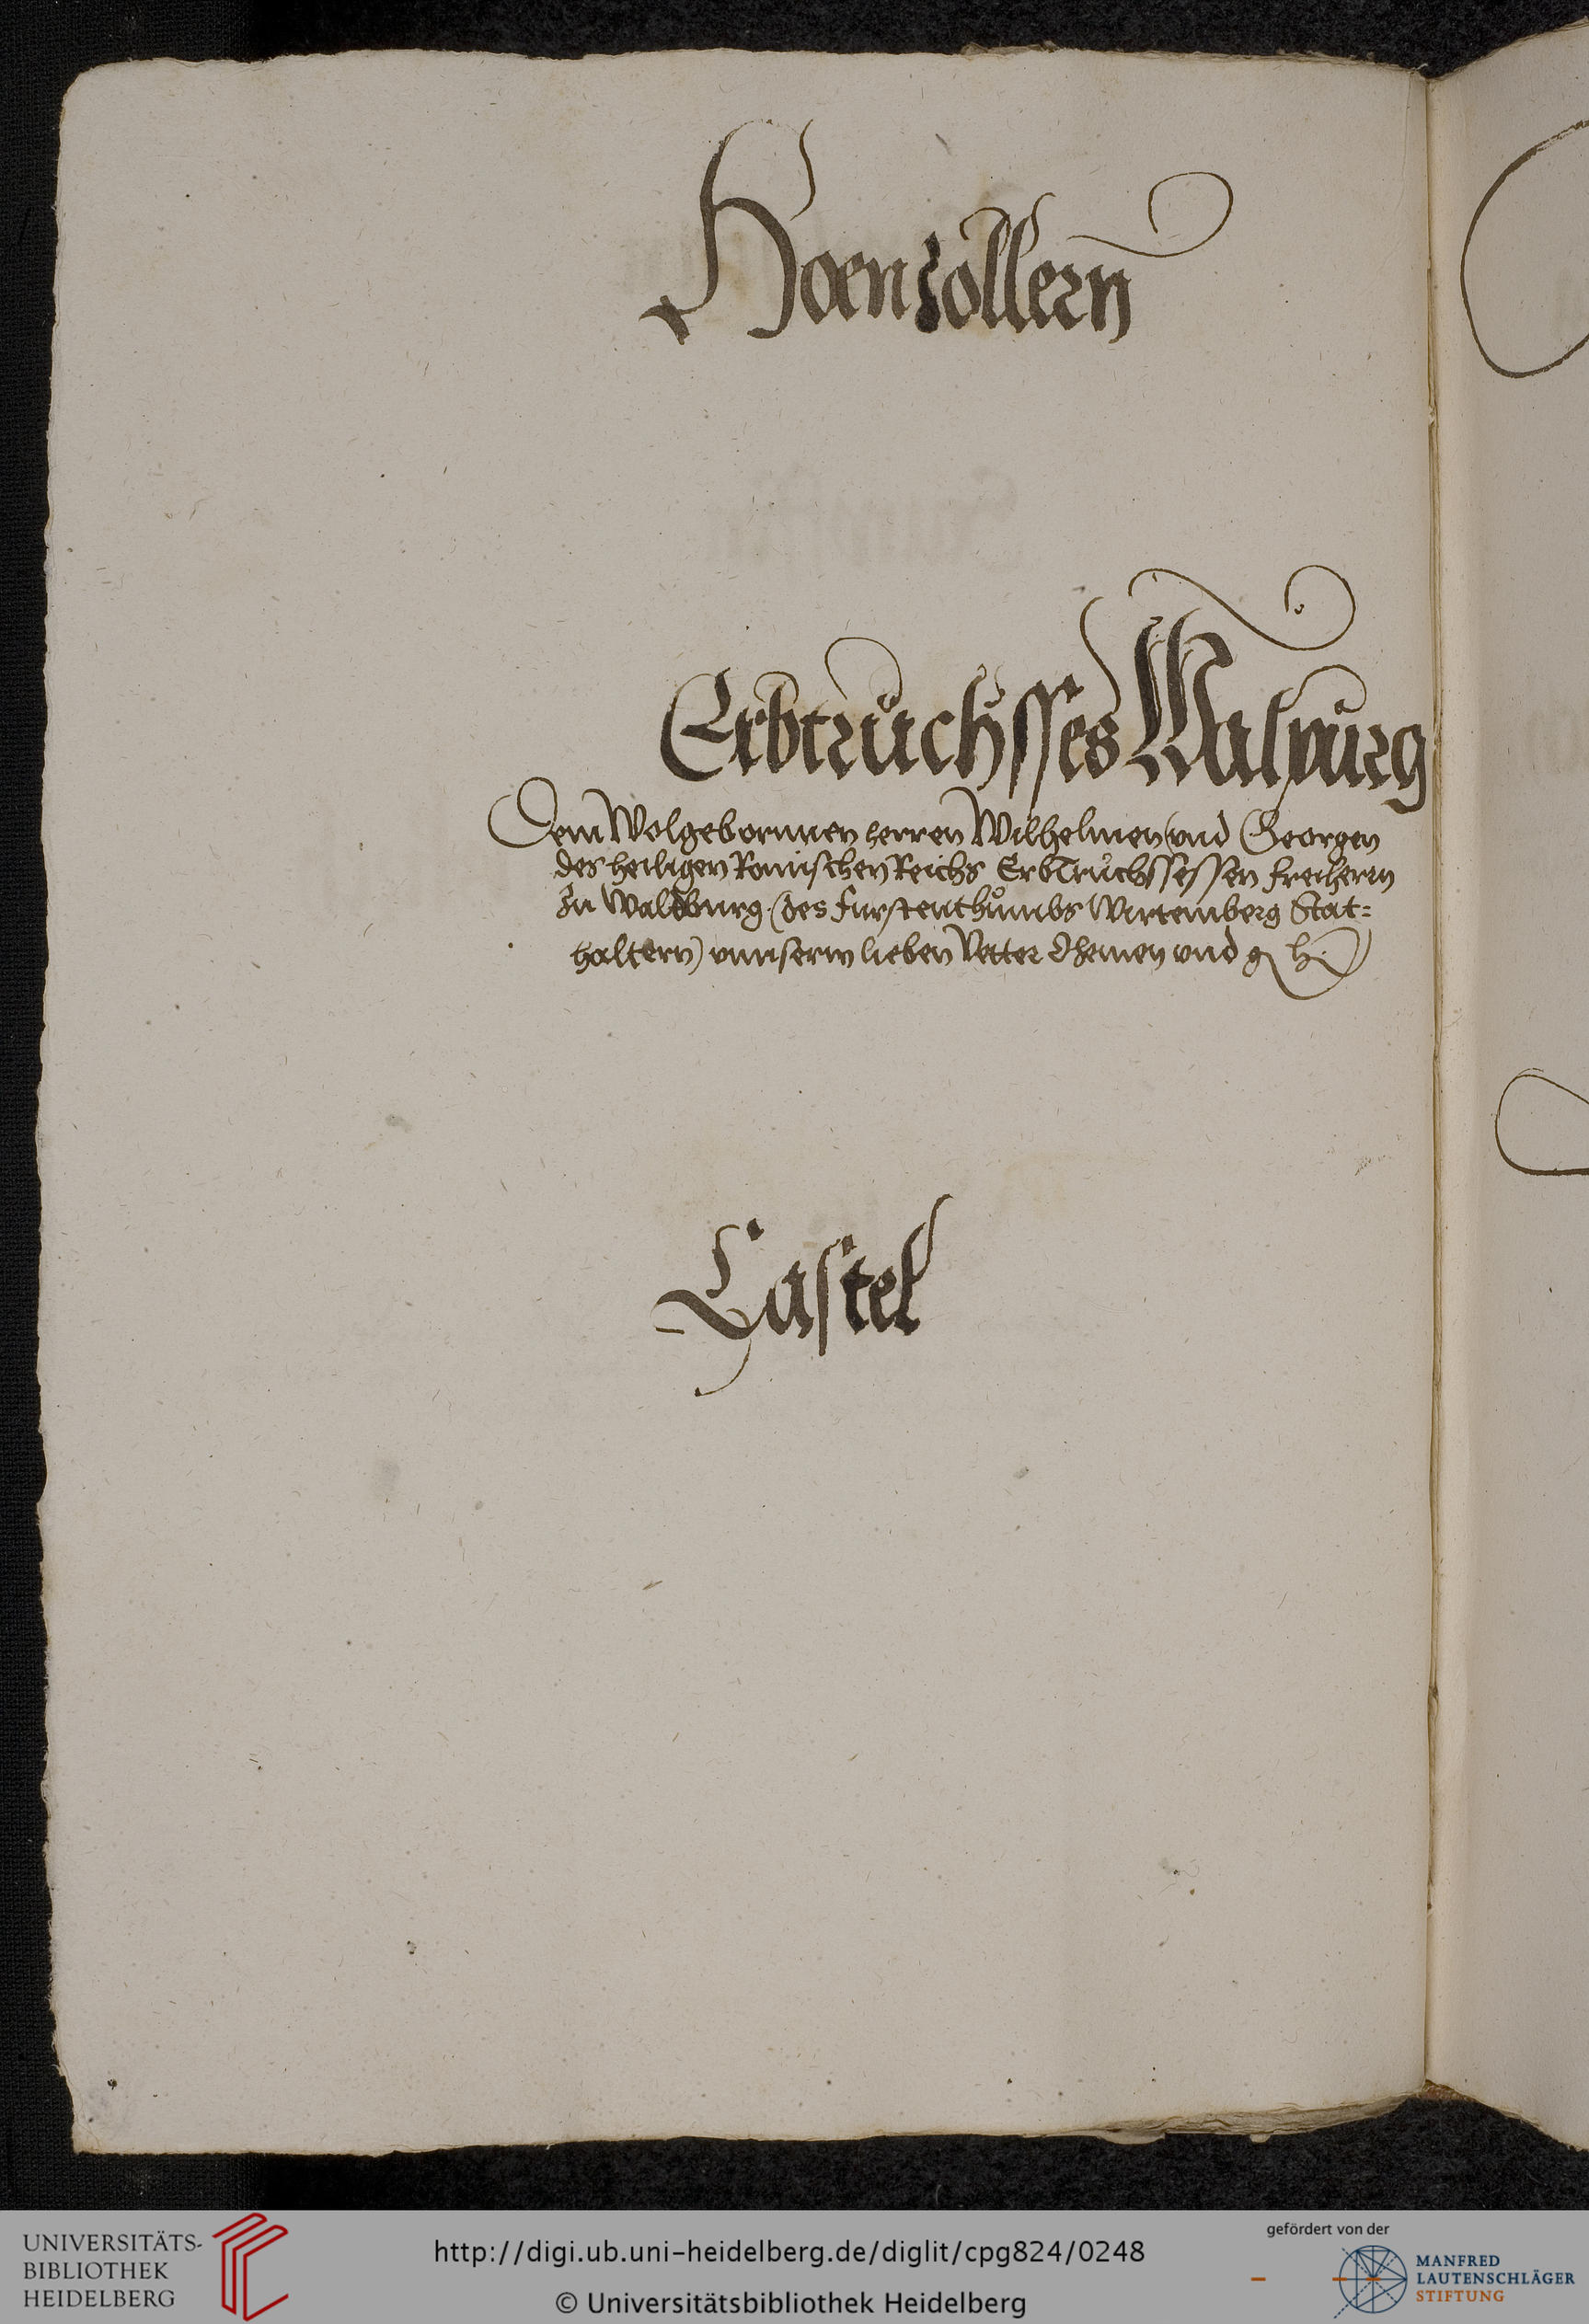 Hoenzollern
Erbtruchsses Walpurg
Dem Wolgebornnen herren Wilhelmen vnd Georgen
des heiligen Romischen Reichs ErbTruchssessen freiherrn
zu Waldburg (des furstenthumbs Wirtemberg Stat=
haltern) vnnserm lieben Vetter Ohemen vnd g h
Castel
UNIVERSITÄTS-
BIBLIOTHEK
HEIDELBERG
http://digi.ub.uni-heidelberg.de/diglit/cpg824/0248
© Universitätsbibliothek Heidelberg
gefördert von der
MANFRED
LAUTENSCHLÄGER
STIFTUNG